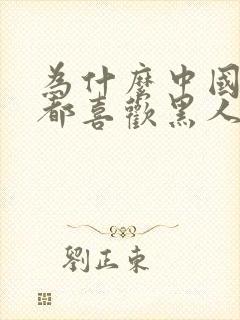 為什麼中國
都喜歡黑人
劉正東